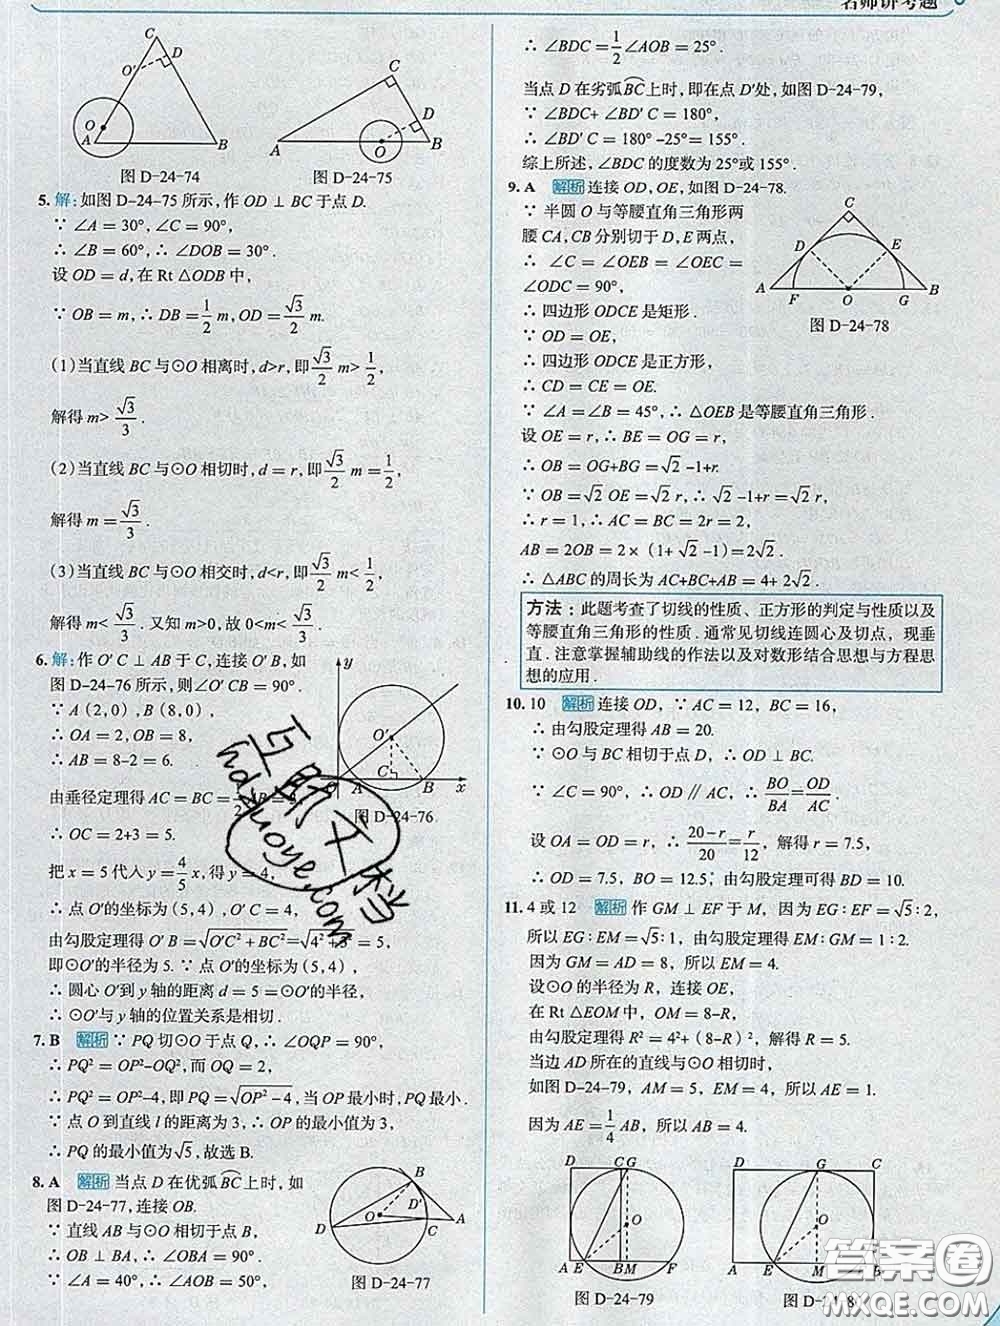 名师讲考题
C
O'
D
O
A
B
图 D-24-74
C
D
A
O
B
图 D-24-75
5. 解:如图 D-24-75 所示,作 OD ⊥ BC 于点 D.
∵ ∠A = 30°,∠C = 90°,
∴ ∠B = 60°,∴ ∠DOB = 30°.
设 OD = d,在 Rt △ODB 中,
∵ OB = m,∴ DB = 1/2 m,OD = √3/2 m.
(1)当直线 BC 与⊙O 相离时,d>r,即 √3/2 m> 1/2,
解得 m> √3/3.
(2)当直线 BC 与⊙O 相切时,d = r,即 √3/2 m = 1/2,
解得 m = √3/3.
(3)当直线 BC 与⊙O 相交时,d<r,即 √3/2 m< 1/2,
解得 m< √3/3. 又知 m>0,故 0<m< √3/3.
6. 解:作 O' C ⊥ AB 于 C,连接 O' B,如
图 D-24-76 所示,则∠O' CB = 90°.
∵ A (2,0),B (8,0),
∴ OA = 2,OB = 8,
∴ AB = 8-2 = 6.
由垂径定理得 AC = BC =
∴ OC = 2+3 = 5.
把 x = 5 代入 y= 4/5 x,得 y = 4,
∴ 点 O'的坐标为 (5,4),O' C = 4,
由勾股定理得 O' B = √(O'C² + BC²) = = 5,
即⊙O'的半径为 5. ∵ 点 O'的坐标为 (5,4),
∴ 圆心 O'到 y 轴的距离 d = 5 = ⊙O'的半径,
∴ ⊙O'与 y 轴的位置关系是相切.
y
O'
C
A
B
x
图 D-24-76
7. B 解析 ∵ PQ 切⊙O 于点 Q,∴ ∠OQP = 90°,
∴ PQ² = OP²-OQ²,而 OQ = 2,
∴ PQ² = OP²-4,即 PQ = √(OP²-4),当 OP 最小时,PQ 最小.
∵ 点 O 到直线 l 的距离为 3,∴ OP 的最小值为 3,
∴ PQ 的最小值为 √5,故选 B.
8. A 解析 当点 D 在优弧 BC 上时,如
图 D-24-77,连接 OB.
∵ 直线 AB 与⊙O 相切于点 B,
∴ OB ⊥ BA,∴ ∠OBA = 90°.
∵ ∠A = 40°,∴ ∠AOB = 50°,
B
D'
O
D
C
A
图 D-24-77
∴ ∠BDC = 1/2 ∠AOB = 25°.
当点 D 在劣弧 BC 上时,即在点 D'处,如图 D-24-79,
∵ ∠BDC+ ∠BD' C = 180°,
∴ ∠BD' C = 180° -25°= 155°.
综上所述,∠BDC 的度数为 25°或 155°.
9. A 解析 连接 OD,OE,如图 D-24-78.
∵ 半圆 O 与等腰直角三角形两
腰 CA,CB 分别切于 D,E 两点,
∴ ∠C = ∠OEB = ∠OEC =
∠ODC = 90°,
∴ 四边形 ODCE 是矩形.
∵ OD = OE,
∴ 四边形 ODCE 是正方形,
∴ CD = CE = OE.
∵ ∠A = ∠B = 45°,∴ △OEB 是等腰直角三角形.
设 OE = r,∴ BE = OG = r,
∴ OB = OG+BG = √2 -1+r.
∵ OB = √2 OE = √2 r,∴ √2 -1+r = √2 r,
∴ r = 1,∴ AC = BC = 2r = 2,
AB = 2OB = 2× (1+ √2 -1) = 2√2.
∴ △ABC 的周长为 AC+BC+AB = 4+ 2√2.
C
D
E
A
F
O
G
B
图 D-24-78
方法:此题考查了切线的性质、正方形的判定与性质以及
等腰直角三角形的性质. 通常见切线连圆心及切点,现垂
直. 注意掌握辅助线的作法以及对数形结合思想与方程思
想的应用.
10. 10 解析 连接 OD,∵ AC = 12,BC = 16,
∴ 由勾股定理得 AB = 20.
∵ ⊙O 与 BC 相切于点 D,∴ OD ⊥ BC.
∵ ∠C = 90°,∴ OD // AC,∴ BO/BA = OD/AC.
设 OA = OD = r,∴ (20-r)/20 = r/12,解得 r = 7.5,
∴ OD = 7.5,BO = 12.5,由勾股定理可得 BD = 10.
11. 4 或 12 解析 作 GM ⊥ EF 于 M,因为 EG∶EF = √5∶2,
所以 EG∶EM = √5∶1,由勾股定理得 EM∶GM = 1∶2.
因为 GM = AD = 8,所以 EM = 4.
设⊙O 的半径为 R,连接 OE,
在 Rt △EOM 中,OM = 8-R,
由勾股定理得 R² = 4²+ (8-R)²,解得 R = 5.
当边 AD 所在的直线与⊙O 相切时,
如图 D-24-79,AM = 5,EM = 4,所以 AE = 1.
因为 AE = 1/4 AB,所以 AB = 4.
D
C
G
O
A
E
B
M
F
图 D-24-79
D
G
C
O
A
E
M
互动文档
hdzuoye.com
答案圈
MXQE.COM